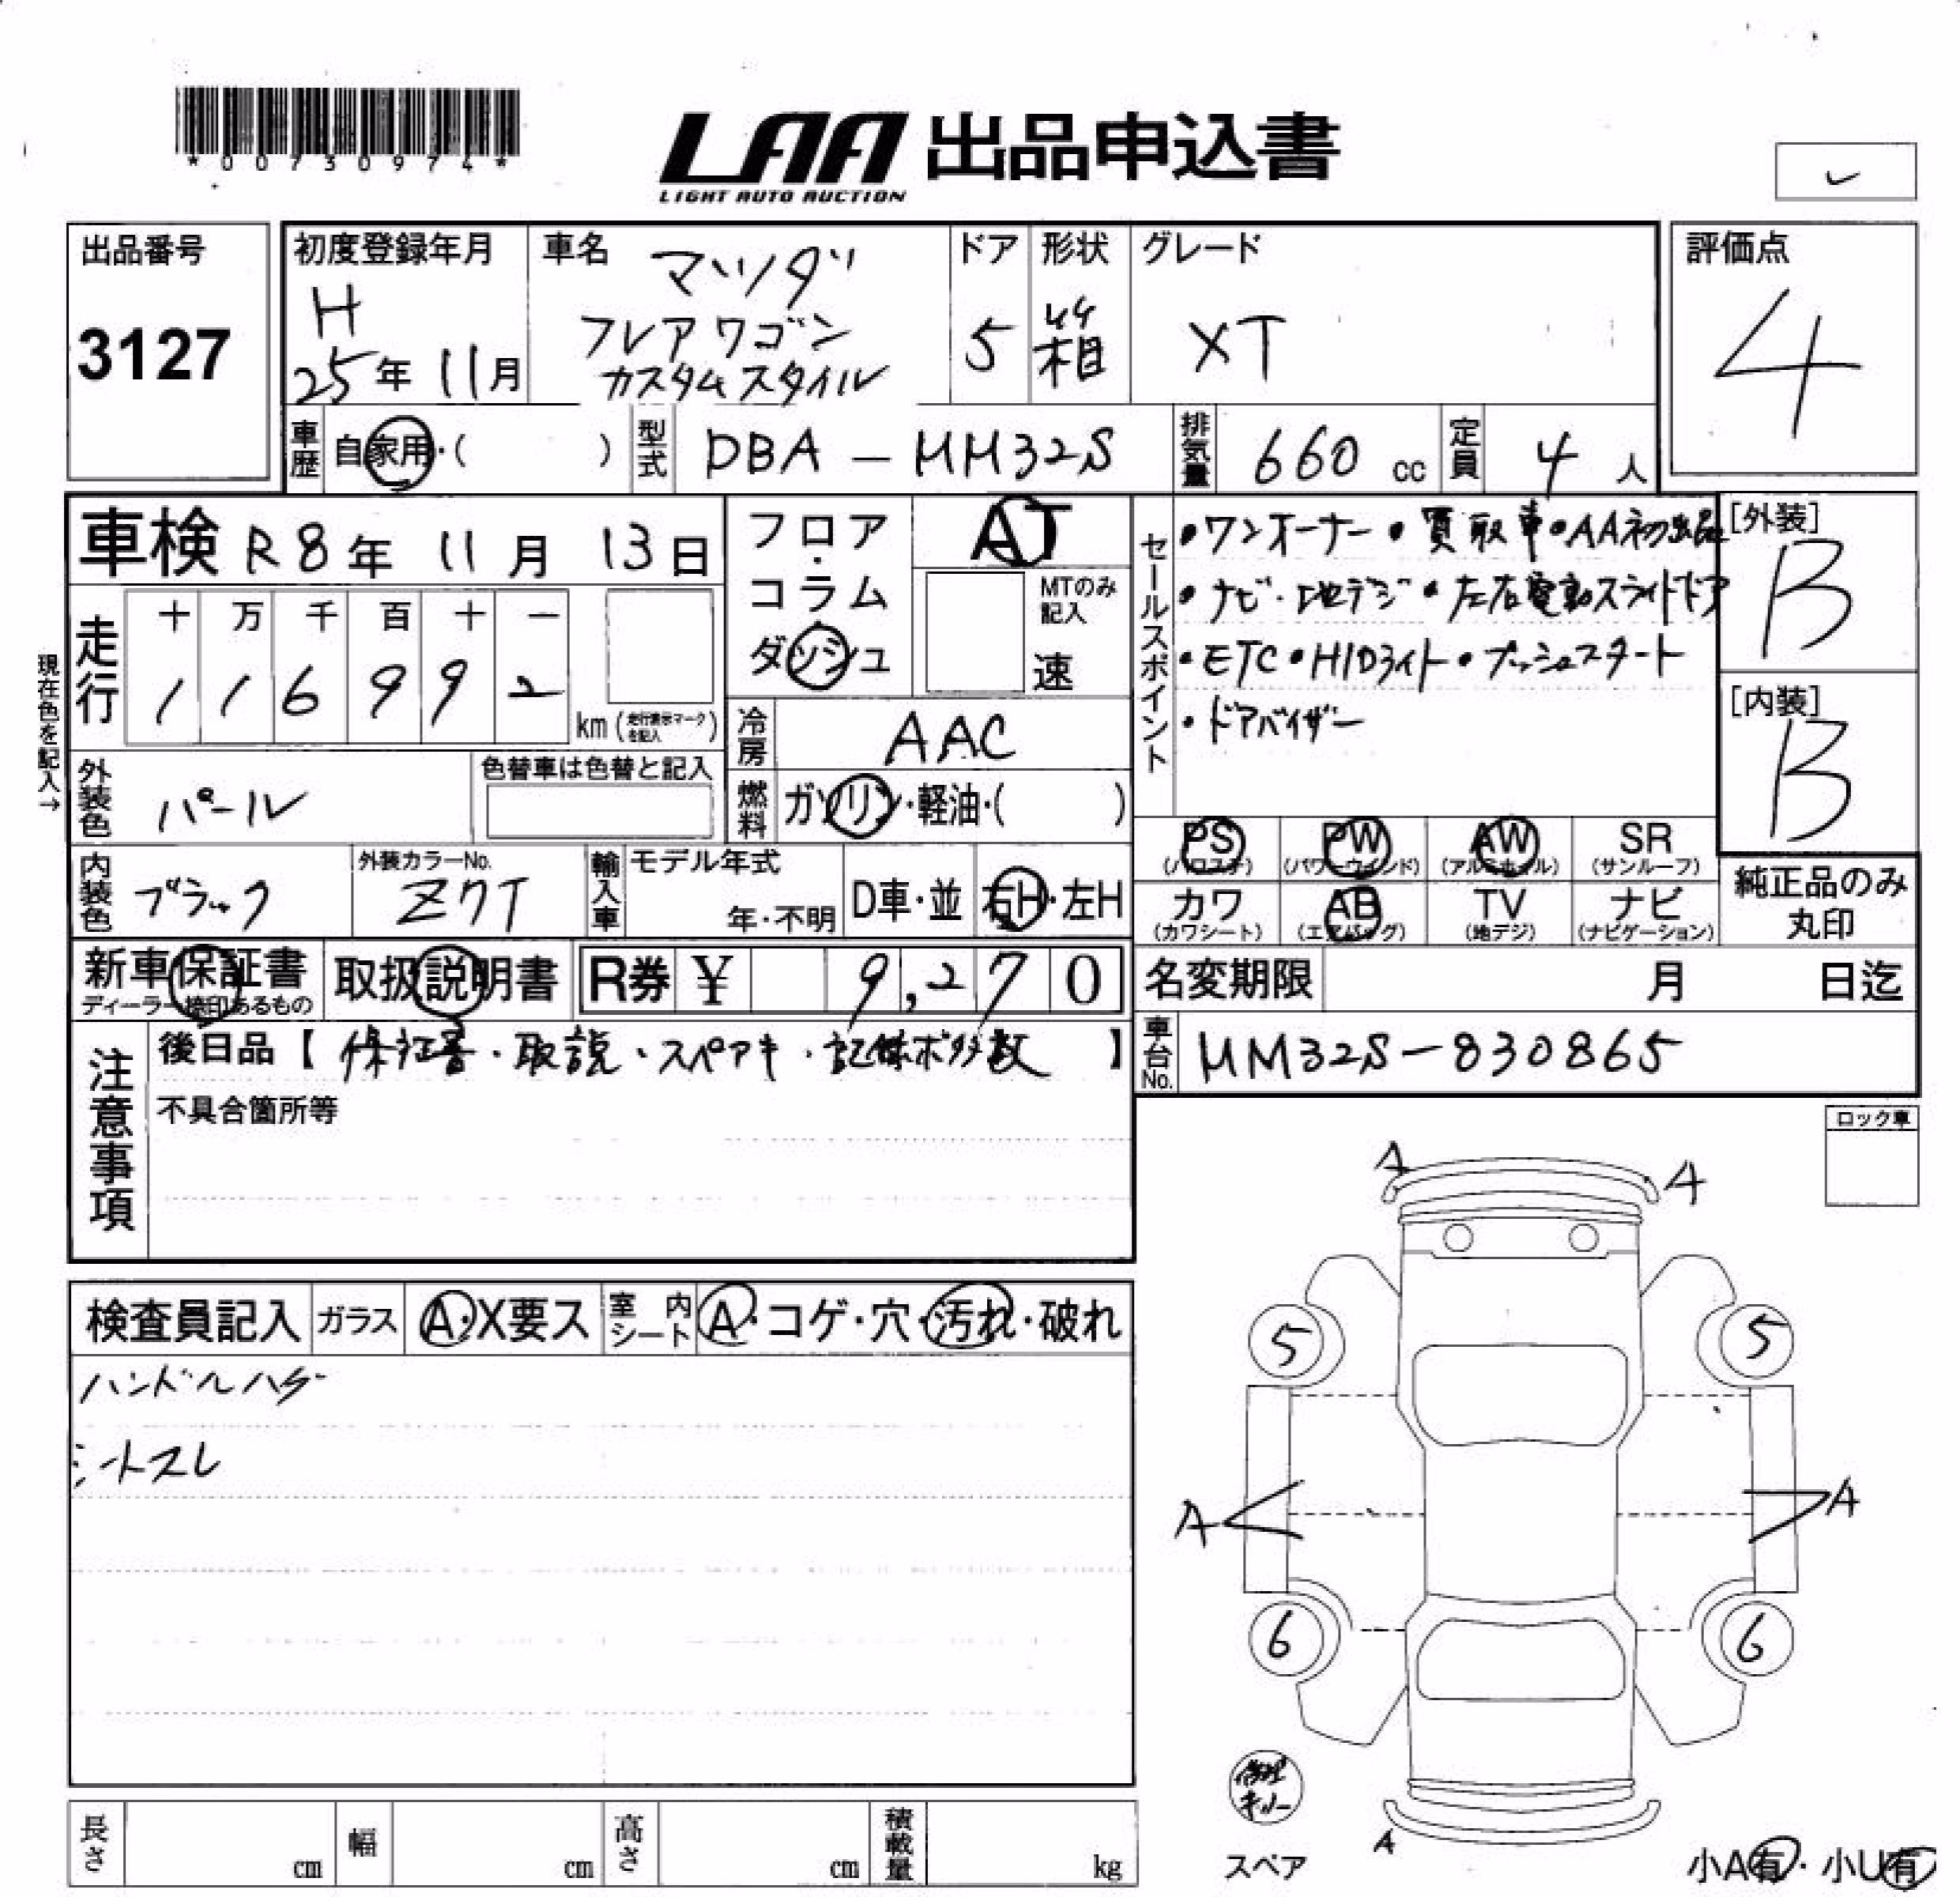 *00730974*
LAA 出品申込書
LIGHT AUTO AUCTION
出品番号
3127
初度登録年月
H
25年 11月
車名 マツダ
フレアワゴン
カスタムスタイル
ドア
5
形状
箱
グレード
XT
評価点
4
車歴 自家用・( )
型式 DBA-MM32S
排気量 660 cc
定員 4 人
車検 R8年 11月 13日
走行
十 万 千 百 十 一
1 1 6 9 9 2
km (走行表示マークを記入)
現在色を記入→
フロア・コラム
ダッシュ
AT
MTのみ記入
速
冷房 AAC
燃料 ガソリン・軽油・( )
セールスポイント
・ワンオーナー・買取車・AA初出品
・ナビ・地デジ・左右電動スライドドア
・ETC・HIDライト・プッシュスタート
・ドアバイザー
[外装]
B
[内装]
B
外装色 パール
色替車は色替と記入
内装色 ブラック
外装カラーNo.
Z7T
輸入車
モデル年式
年・不明
D車・並
右H・左H
PS
(パワステ)
PW
(パワーウィンド)
AW
(アルミホイル)
SR
(サンルーフ)
カワ
(カワシート)
AB
(エアバッグ)
TV
(地デジ)
ナビ
(ナビゲーション)
純正品のみ
丸印
新車保証書
ディーラー捺印あるもの
取扱説明書
R券 ¥ 9,270
名変期限 月 日迄
車台No. MM32S-830865
注意事項
後日品【保証書・取説・スペアキ・記録ボタ数】
不具合箇所等
ロック車
検査員記入
ガラス A・X要ス
室内シート A・コゲ・穴・汚れ・破れ
ハンドルハゲ
シートスレ
A A
5 5
A A
6 6
修理キット
A
スペア
小A有・小U有
長さ cm
幅 cm
高さ cm
積載量 kg